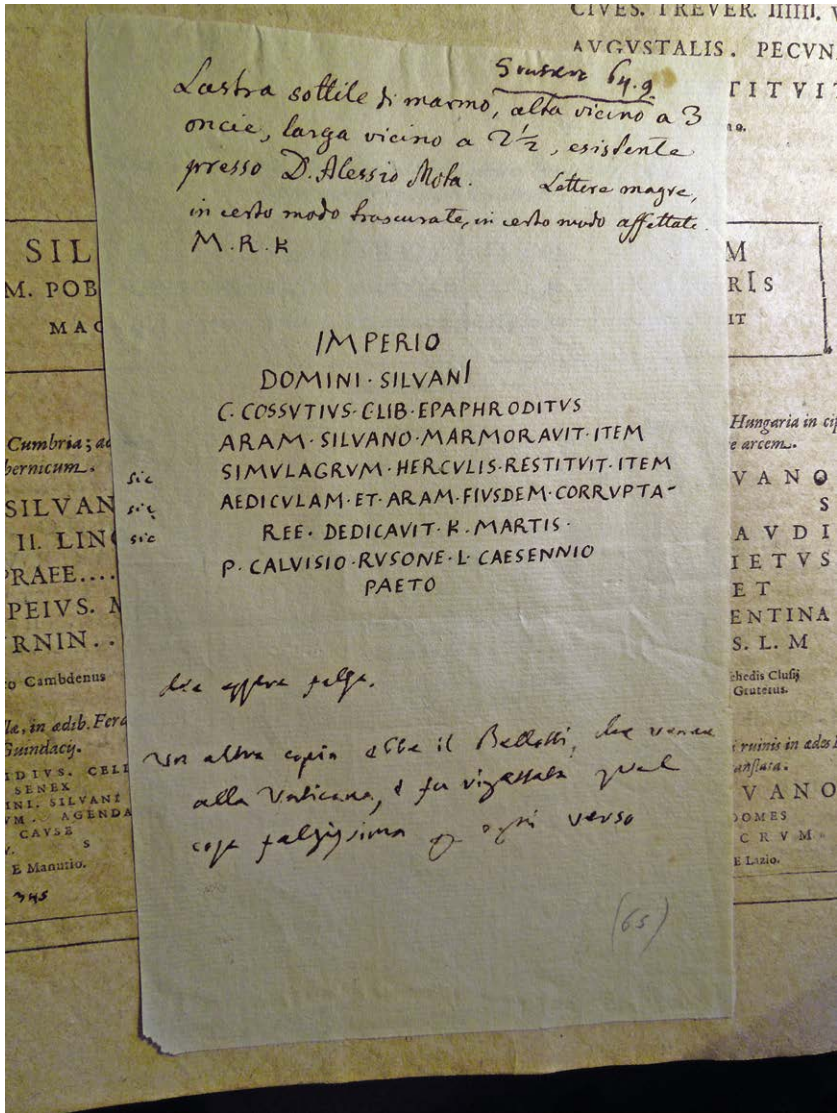 CIVES. TREVER. IIIIII. V
AVGVSTALIS. PECVN
TITVIT
64.9
Lastra sottile di marmo, alta vicino a 3
oncie, larga vicino a 2½, esistente
presso D. Alessio Mola. Lettere magre,
in certo modo trascurate, in certo modo affettate.
M.R.K
IMPERIO
DOMINI·SILVANI
C·COSSVTIVS·C·LIB·EPAPHRODITVS
ARAM·SILVANO·MARMORAVIT·ITEM
sic SIMVLAGRVM·HERCVLIS·RESTITVIT·ITEM
sic AEDICVLAM·ET·ARAM·FIVSDEM·CORRVPTA-
sic REE·DEDICAVIT·K·MARTIS·
P·CALVISIO·RVSONE·L·CAESENNIO
PAETO
dee essere falsa.
Un altra copia ebbe il Bellotti, che venne
alla Vaticana, e fu rigettata qual
cosa falsissima p ogni verso
(65)
SIL
M. POB
MAG
Cumbria; ad
bernicum.
SILVAN
II. LING
PRAEE....
PEIVS. M
RNIN..
o Cambdenus
læ, in ædib. Ferd
Guindacij.
IDIVS. CELE
SENEX
INI. SILVANI
VM. AGENDA
CAVSE
V. S
E Manutio.
345
M
RIS
IT
Hungaria in cip
e arcem.
VANO
S
AVDI
IETVS
ET
ENTINA
S. L. M
chedis Clusij
Gruterus.
i ruinis in ædes
VANO
DOMES
CRVM
E Lazio.